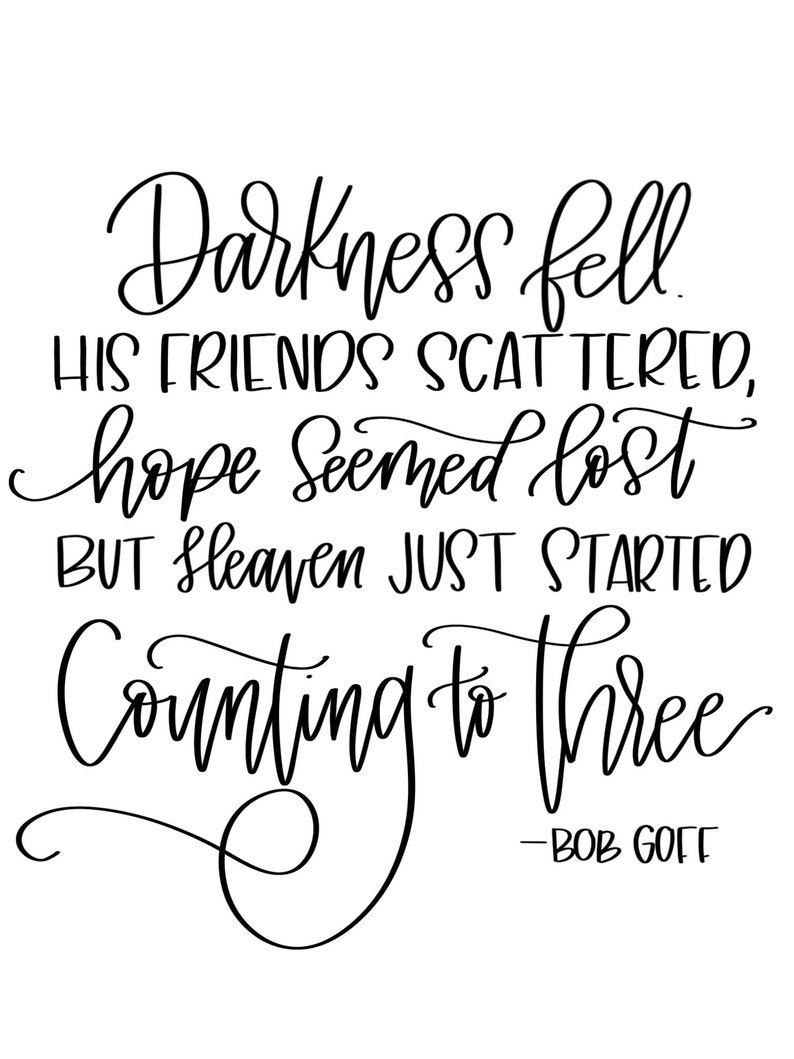 Darkness fell.
HIS FRIENDS SCATTERED,
hope seemed lost
BUT Heaven JUST STARTED
Counting to Three
—BOB GOFF